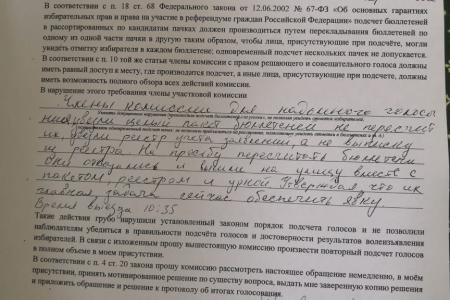 В соответствии с п. 18 ст. 68 Федерального закона от 12.06.2002 № 67-ФЗ «Об основных гарантиях
избирательных прав и права на участие в референдуме граждан Российской Федерации» подсчет бюллетеней
в рассортированных по кандидатам пачках должен производиться путем перекладывания бюллетеней по
одному из одной части пачки в другую таким образом, чтобы лица, присутствующие при подсчёте, могли
увидеть отметку избирателя в каждом бюллетене; одновременный подсчет нескольких пачек не допускается.
В соответствии с п. 10 той же статьи члены комиссии с правом решающего и совещательного голоса должны
иметь равный доступ к месту, где производится подсчет, а иные лица, присутствующие при подсчете, должны
иметь возможность полного обзора всех действий комиссии.
В нарушение этого требования члены участковой комиссии
Члены комиссии для надомного голосо
пакет бюллетеней не пересчит
их. Взяли реестр учета заявлений, а не выписку
из реестра. На просьбу пересчитать бюллетени
они отказались и вышли на улицу вместе с
пакетом реестром и урной. Утверждая, что их
главная задача сейчас обеспечить явку.
Время выезда 10:35
Такие действия грубо нарушили установленный законом порядок подсчета голосов и не позволили
наблюдателям убедиться в правильности подсчёта голосов и достоверности результатов волеизъявления
избирателей. В связи с изложенным прошу вышестоящую комиссию произвести повторный подсчет голосов
в полном объеме в моем присутствии.
В соответствии с п. 4 ст. 20 закона прошу комиссию рассмотреть настоящее обращение немедленно, в моём
присутствии, принять мотивированное решение по существу вопроса, выдать мне заверенную копию решения
и приложить обращение и решение к протоколу об итогах голосования.